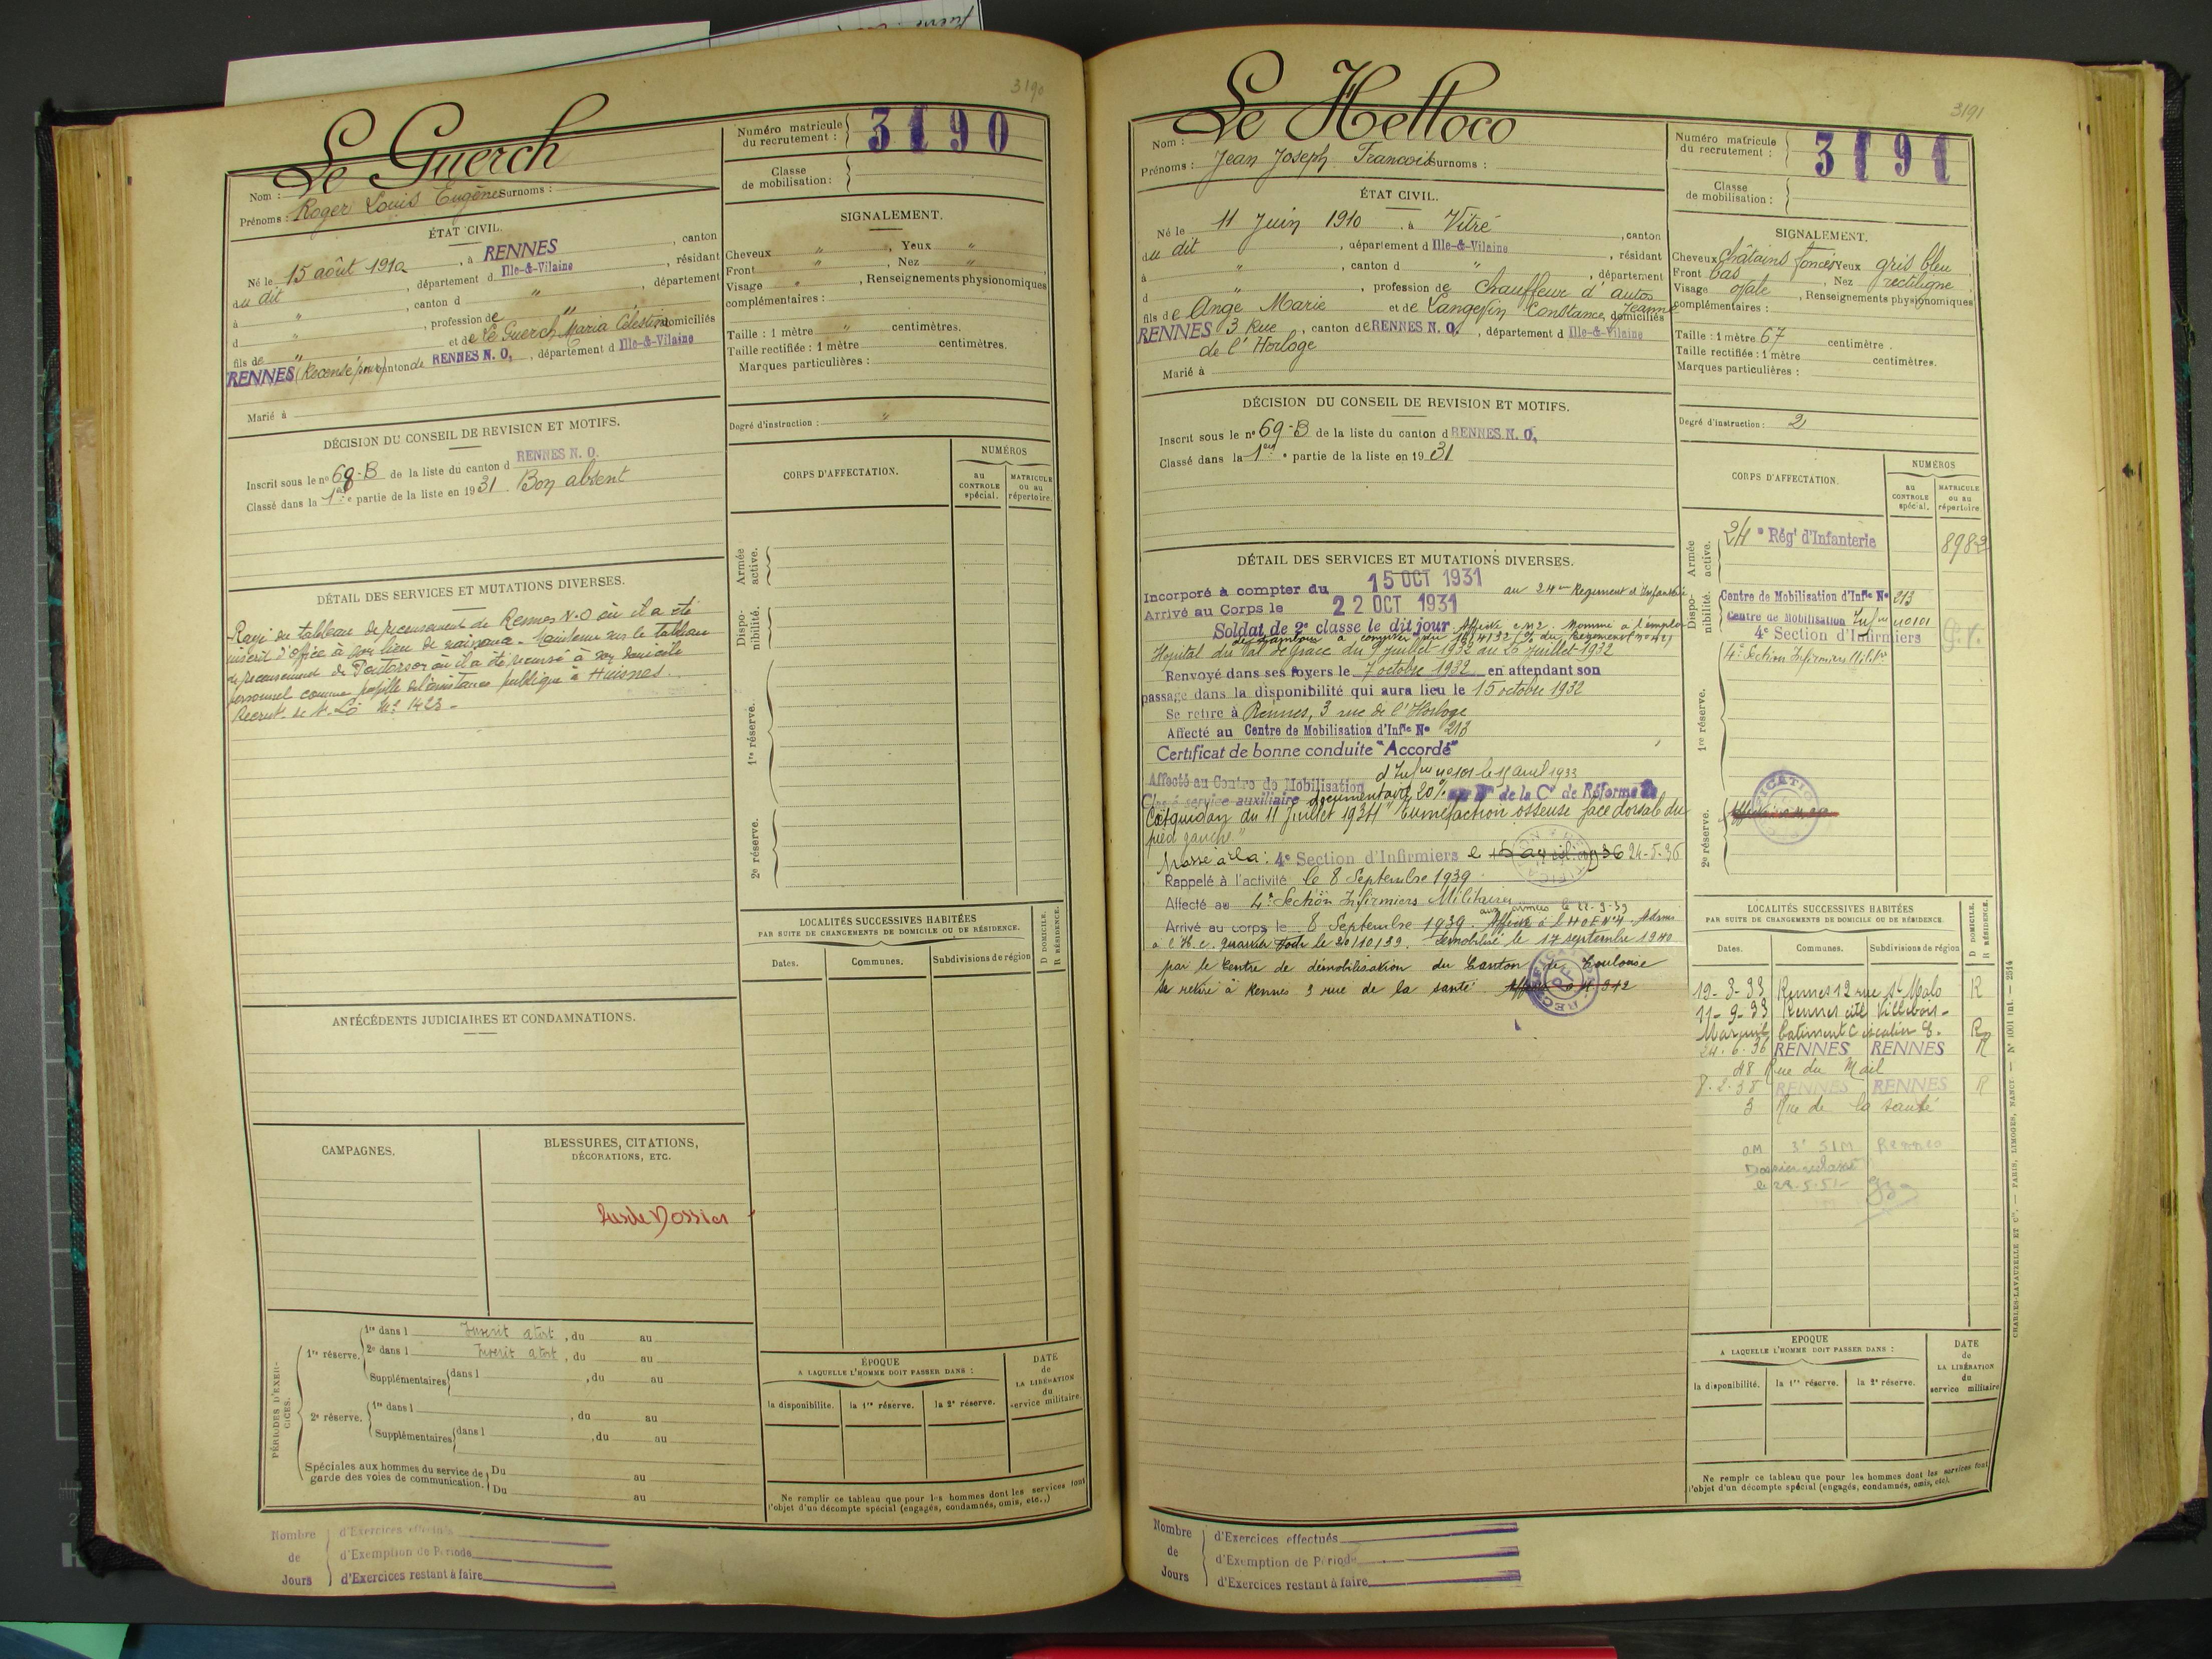 3190
Le Guerch
Nom :
Prénoms : Roger Louis Eugène Surnoms :
Numéro matricule du recrutement : 3190
Classe de mobilisation :
ÉTAT CIVIL.
Né le 15 août 1910, à RENNES, canton
du dit, département d Ille-&-Vilaine, résidant
à ", canton d ", département
d ", profession de "
fils de " et de Le Guerch Maria Célestine domiciliés
RENNES (Recensé canton de RENNES N. O., département d Ille-&-Vilaine
Marié à
SIGNALEMENT.
Cheveux ", Yeux "
Front ", Nez "
Visage ", Renseignements physionomiques
complémentaires :
Taille : 1 mètre " centimètres.
Taille rectifiée : 1 mètre centimètres.
Marques particulières :
Degré d'instruction : "
DÉCISION DU CONSEIL DE REVISION ET MOTIFS.
Inscrit sous le n° 69-B de la liste du canton d RENNES N. O.
Classé dans la 1ère partie de la liste en 1931. Bon absent
CORPS D'AFFECTATION.
NUMÉROS
au CONTROLE spécial.
MATRICULE ou au répertoire.
Armée active.
Disponibilité.
1re réserve.
2e réserve.
DÉTAIL DES SERVICES ET MUTATIONS DIVERSES.
Rayé du tableau de recensement de Rennes N.O où il a été
inscrit d'office à son lieu de naissance. Maintenu sur le tableau
de recensement de Pontorson où il a été recensé à son domicile
personnel comme pupille de l'assistance publique à Huisnes.
Recrut. de St Lô N° 1423 -
ANTÉCÉDENTS JUDICIAIRES ET CONDAMNATIONS.
LOCALITÉS SUCCESSIVES HABITÉES
PAR SUITE DE CHANGEMENTS DE DOMICILE OU DE RÉSIDENCE.
D DOMICILE.
R RÉSIDENCE.
Dates.
Communes.
Subdivisions de région
CAMPAGNES.
BLESSURES, CITATIONS,
DÉCORATIONS, ETC.
Dossier
PÉRIODES D'EXERCICES.
1re réserve.
1re dans l Inscrit a tort, du au
2e dans l Inscrit a tort, du au
Supplémentaires dans l , du au
2e réserve.
1re dans l , du au
Supplémentaires dans l , du au
Spéciales aux hommes du service de garde des voies de communication.
Du au
Du au
ÉPOQUE
A LAQUELLE L'HOMME DOIT PASSER DANS :
la disponibilité.
la 1re réserve.
la 2e réserve.
DATE
de
LA LIBÉRATION
du
service militaire.
Ne remplir ce tableau que pour les hommes dont les services font
l'objet d'un décompte spécial (engagés, condamnés, omis, etc..)
Nombre de Jours
d'Exercices effectués
d'Exemption de Période
d'Exercices restant à faire
3191
Le Helloco
Nom :
Prénoms : Jean Joseph François Surnoms :
Numéro matricule du recrutement : 3191
Classe de mobilisation :
ÉTAT CIVIL.
Né le 11 Juin 1910, à Vitré, canton
du dit, département d Ille-&-Vilaine, résidant
à ", canton d ", département
d ", profession de Chauffeur d'autos
fils de Ange Marie et de Langevin Constance Jeanne, domiciliés
RENNES 3 Rue, canton de RENNES N. O., département d Ille-&-Vilaine
de l'Horloge
Marié à
SIGNALEMENT.
Cheveux châtains foncés Yeux gris bleu
Front bas, Nez rectiligne
Visage ovale, Renseignements physionomiques
complémentaires :
Taille : 1 mètre 67 centimètre.
Taille rectifiée : 1 mètre centimètres.
Marques particulières :
Degré d'instruction : 2
DÉCISION DU CONSEIL DE REVISION ET MOTIFS.
Inscrit sous le n° 69-B de la liste du canton d RENNES N. O.
Classé dans la 1ère partie de la liste en 1931
CORPS D'AFFECTATION.
NUMÉROS
au CONTROLE spécial.
MATRICULE ou au répertoire.
Armée active.
24e Régt d'Infanterie 8983
Disponibilité.
Centre de Mobilisation d'Inf'ie N° 213
Centre de Mobilisation Inf'ie no 101
4e Section d'Infirmiers
1re réserve.
4e Section Infirmiers Milit'res
2e réserve.
DÉTAIL DES SERVICES ET MUTATIONS DIVERSES.
Incorporé à compter du 15 OCT 1931 au 24ème Régiment d'Infanterie
Arrivé au Corps le 22 OCT 1931
Soldat de 2e classe le dit jour. Affecté C M 2. Nommé à l'emploi
de tambour à compter du
Hopital du Val de Grace du 9 juillet 1932 au 26 Juillet 1932
Renvoyé dans ses foyers le 7 octobre 1932 en attendant son
passage dans la disponibilité qui aura lieu le 15 octobre 1932
Se retire à Rennes, 3 rue de l'Horloge
Affecté au Centre de Mobilisation d'Inf'ie N° 213
Certificat de bonne conduite "Accordé"
Affecté au Centre de Mobilisation d'Inf'ie no 101 le 15 avril 1933
Classé service auxiliaire documentaire 20% de la Cn de Réforme de
Coëtquidan du 11 Juillet 1934 "Tuméfaction osseuse face dorsale du
pied gauche"
Passé à la : 4e Section d'Infirmiers le 15 avril 1936 24-5-36
Rappelé à l'activité le 8 Septembre 1939
Affecté au 4e Section Infirmiers Militaires
aux armées le 22-9-39
Arrivé au corps le 8 Septembre 1939. Affecté à l'HOE N°4. Admis
a l'H.C. le 20/10/39. Démobilisé le 17 septembre 1940
par le Centre de démobilisation du Canton de Toulouse
Se retire à Rennes 3 rue de la santé.
LOCALITÉS SUCCESSIVES HABITÉES
PAR SUITE DE CHANGEMENTS DE DOMICILE OU DE RÉSIDENCE.
D DOMICILE.
R RÉSIDENCE.
Dates.
Communes.
Subdivisions de région
19-3-33 Rennes 12 rue St Malo R
11-9-33 Rennes cité Villebois-
Mareuil batiment C escalier R
24.6.36 RENNES RENNES R
48 Rue du Mail
8.2.38 RENNES RENNES R
3 Rue de la santé
3e SIM Rennes
Dossier reclassé
le 22.5.51
EPOQUE
A LAQUELLE L'HOMME DOIT PASSER DANS :
la disponibilité.
la 1re réserve.
la 2e réserve.
DATE
de
LA LIBÉRATION
du
service militaire
Ne remplr ce tableau que pour les hommes dont les services font
l'objet d'un décompte spécial (engagés, condamnés, omis, etc).
CHARLES-LAVAUZELLE ET Cie. — PARIS, LIMOGES, NANCY — N° 1001 int. — 2514
Nombre de Jours
d'Exercices effectués
d'Exemption de Période
d'Exercices restant à faire